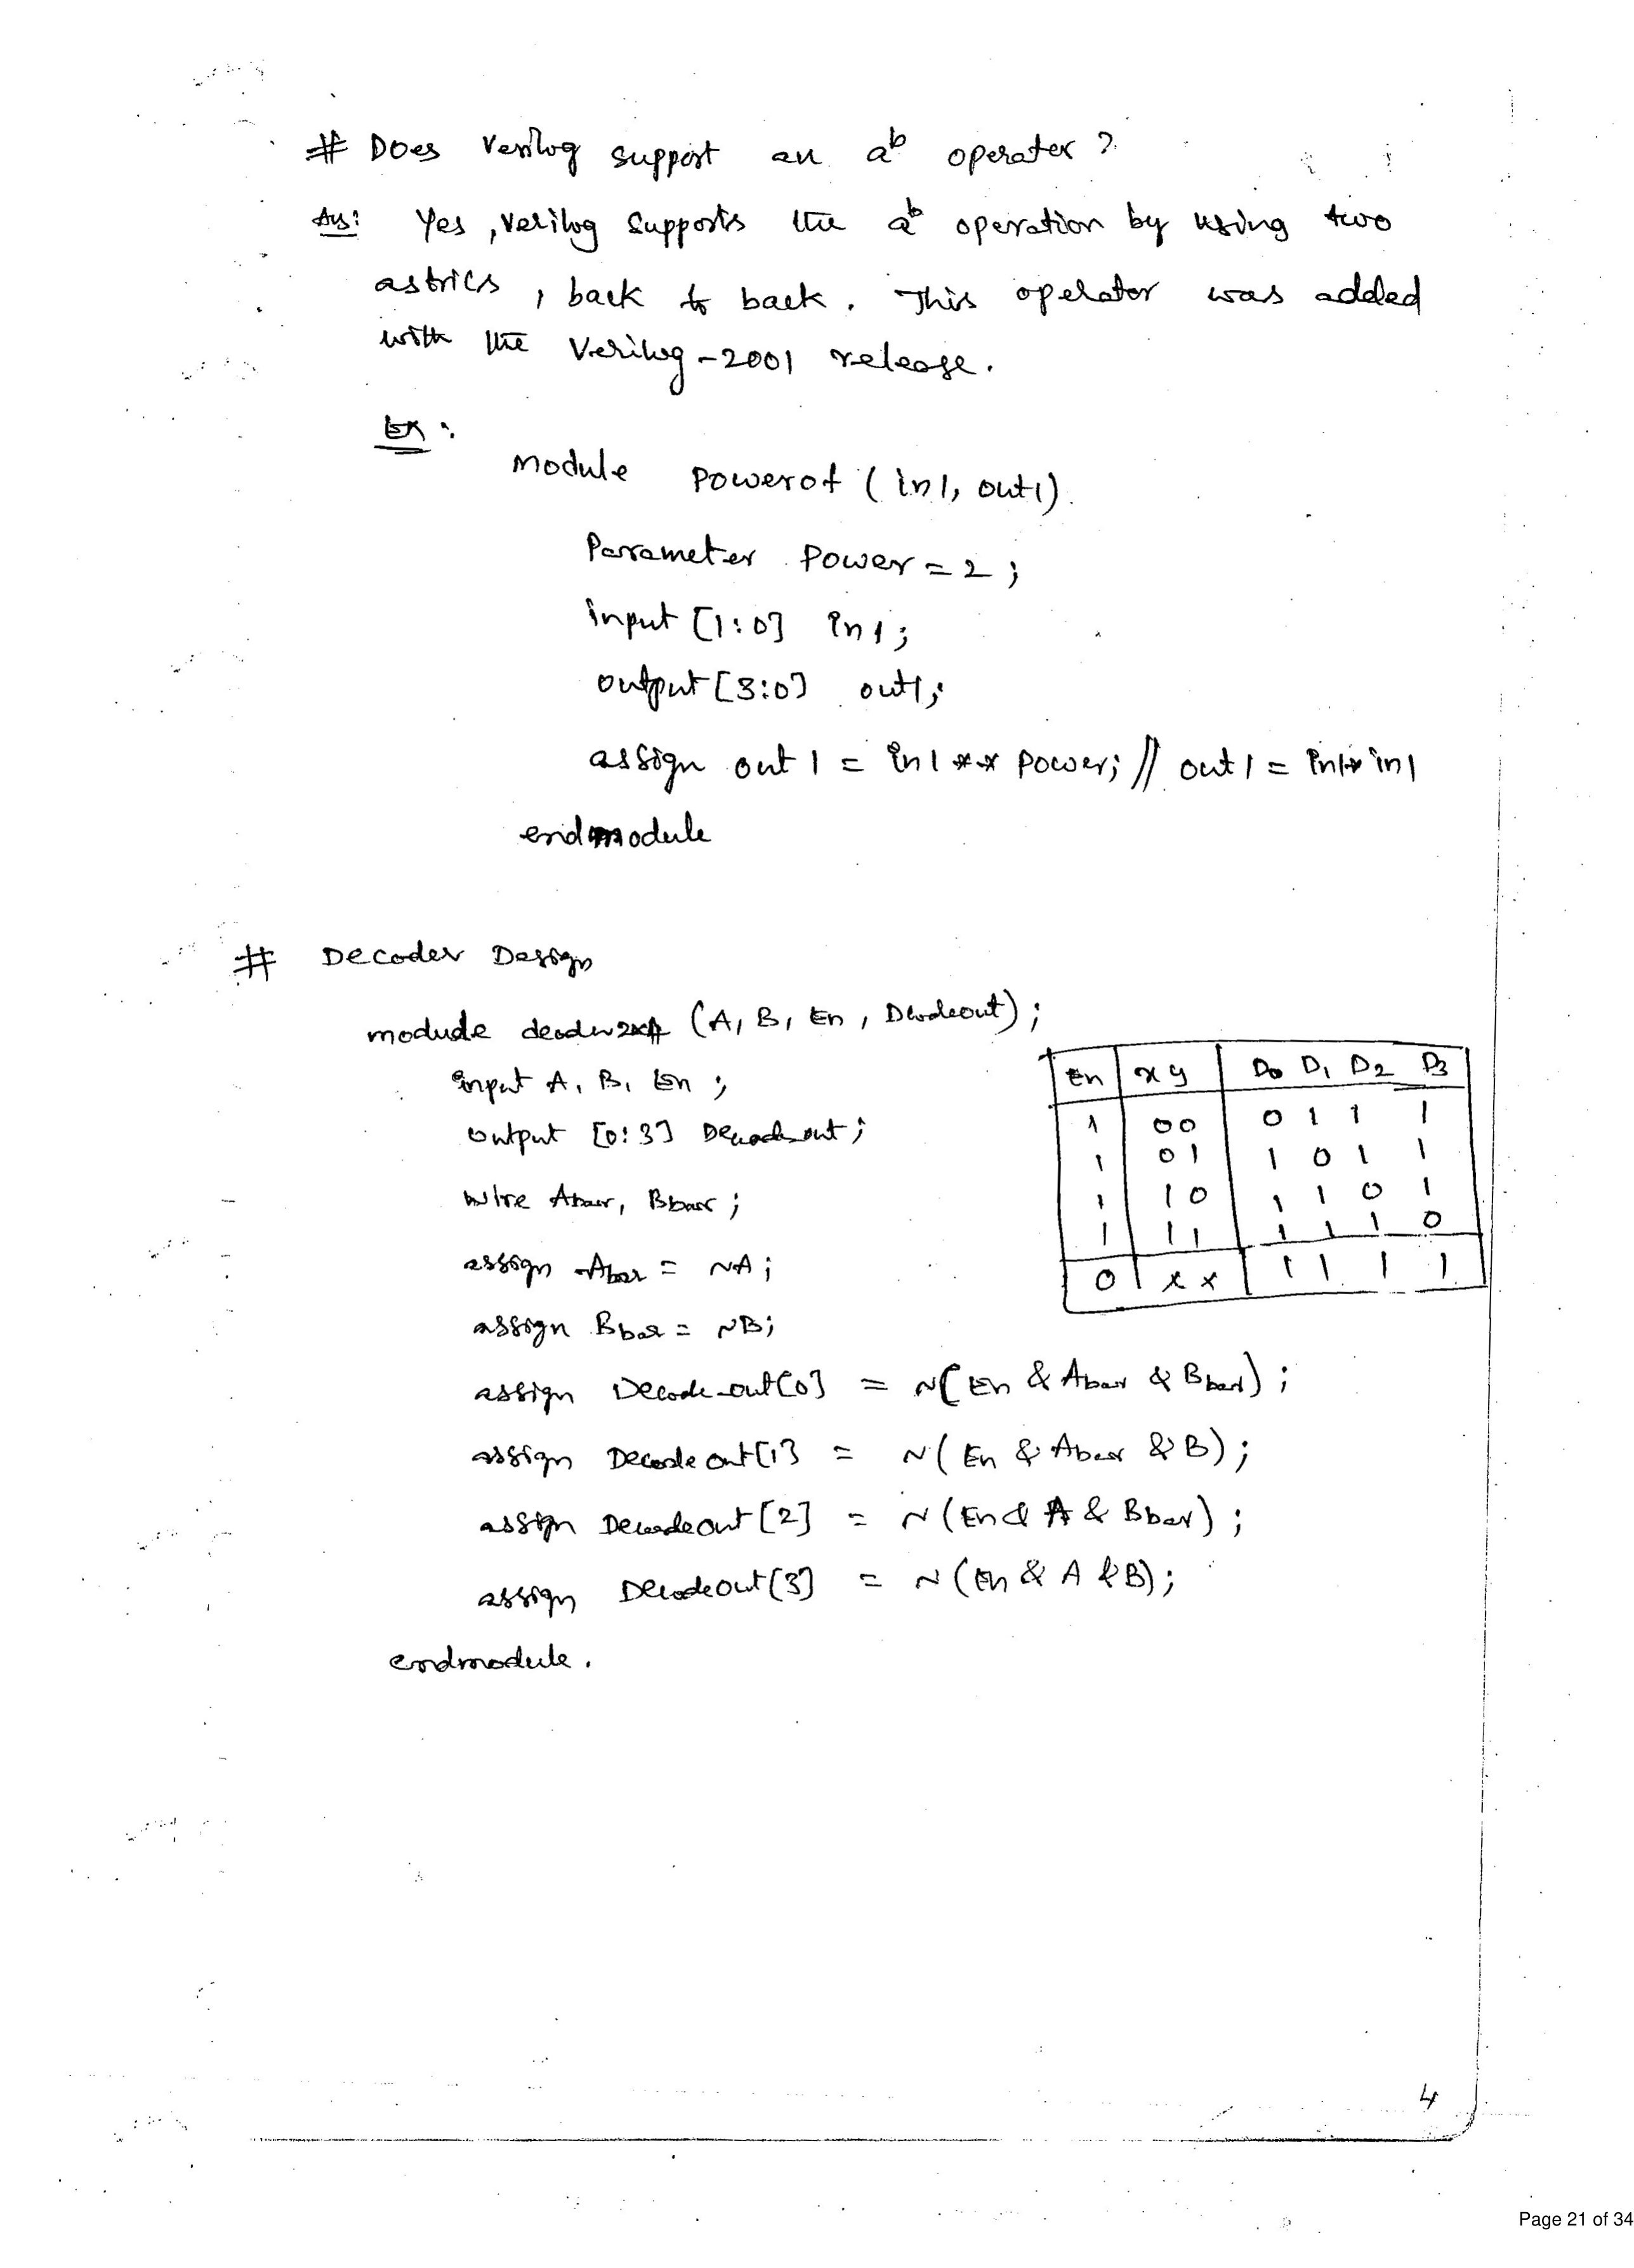 # Does Verilog support an a^b operater ?
Ans: Yes, Verilog supports the a^b operation by using two
astrics, back to back. This operator was added
with the Verilog-2001 release.
Ex:
module powerof (in1, out1).
Parameter Power = 2;
input [1:0] in1;
output [3:0] out1;
assign out1 = in1 ** power; // out1 = in1 * in1
endmodule
# Decoder Design
module decoder2x4 (A, B, En, Decodeout);
input A, B, En;
output [0:3] Decodeout;
wire Abar, Bbar;
assign Abar = ~A;
assign Bbar = ~B;
assign Decode_out[0] = ~(En & Abar & Bbar);
assign Decodeout[1] = ~(En & Abar & B);
assign Decodeout[2] = ~(En & A & Bbar);
assign Decodeout[3] = ~(En & A & B);
endmodule.
En x y D0 D1 D2 D3
1 00 0 1 1 1
1 01 1 0 1 1
1 10 1 1 0 1
1 11 1 1 1 0
0 x x 1 1 1 1
4
Page 21 of 34